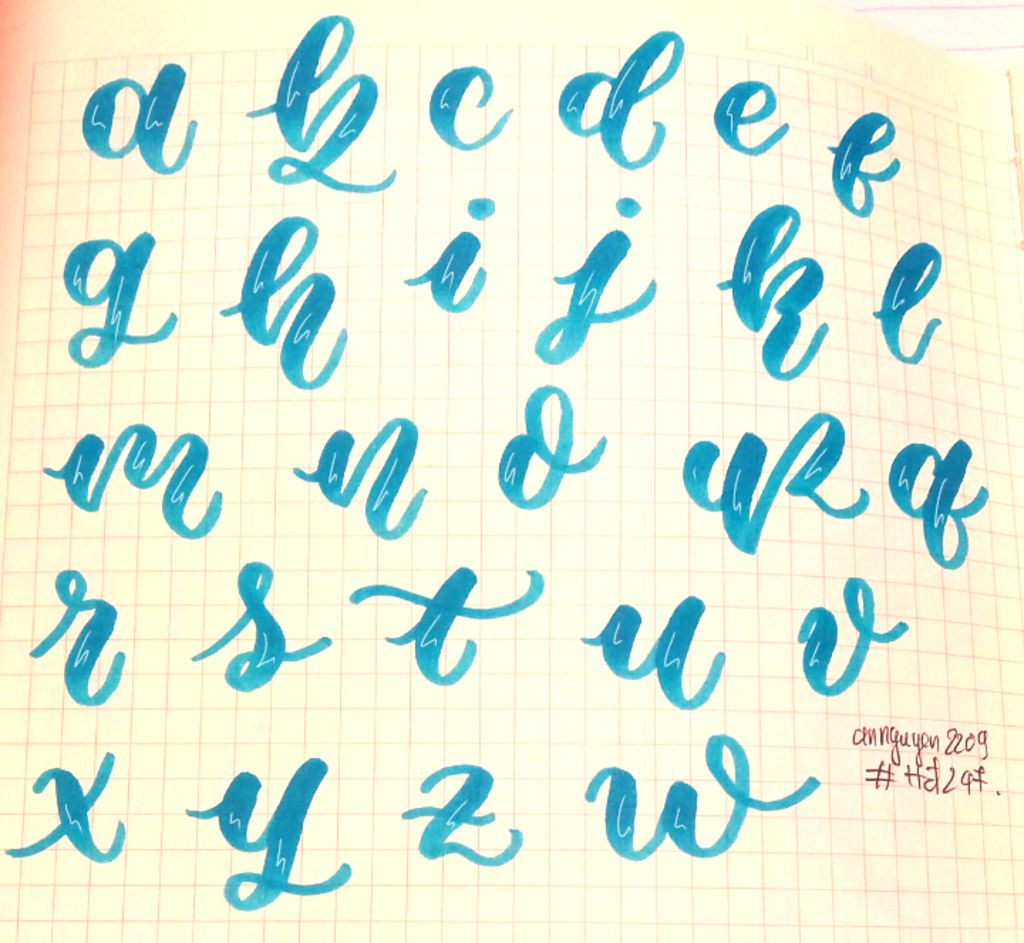 a b c d e f
g h i j k l
m n o p q
r s t u v
x y z w
annguyen2209